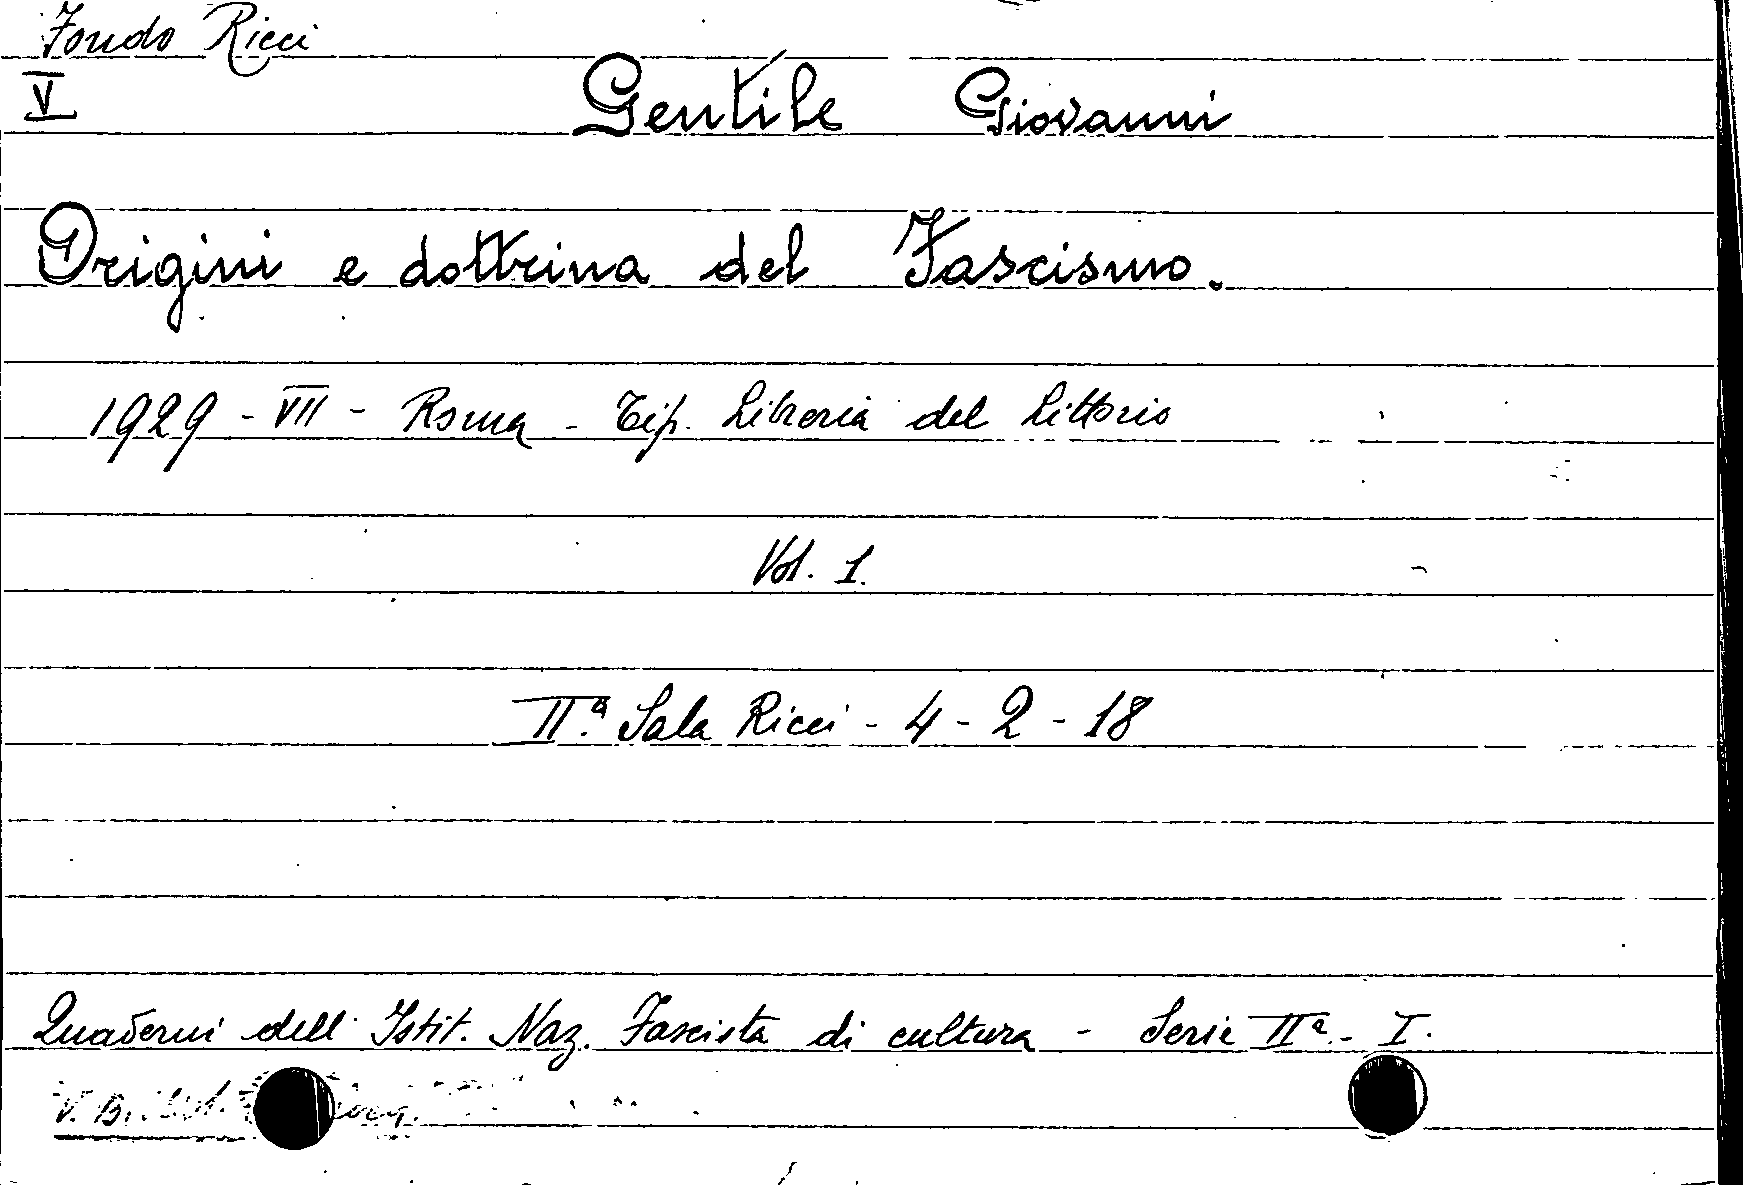 Fondo Ricci
V
Gentile Giovanni
Origini e dottrina del Fascismo.
1929 - VII - Roma - Tip. Libreria del Littorio
Vol. 1.
IIª. Sala Ricci - 4 - 2 - 18
Quaderni dell' Istit. Naz. Fascista di cultura - Serie IIª - I.